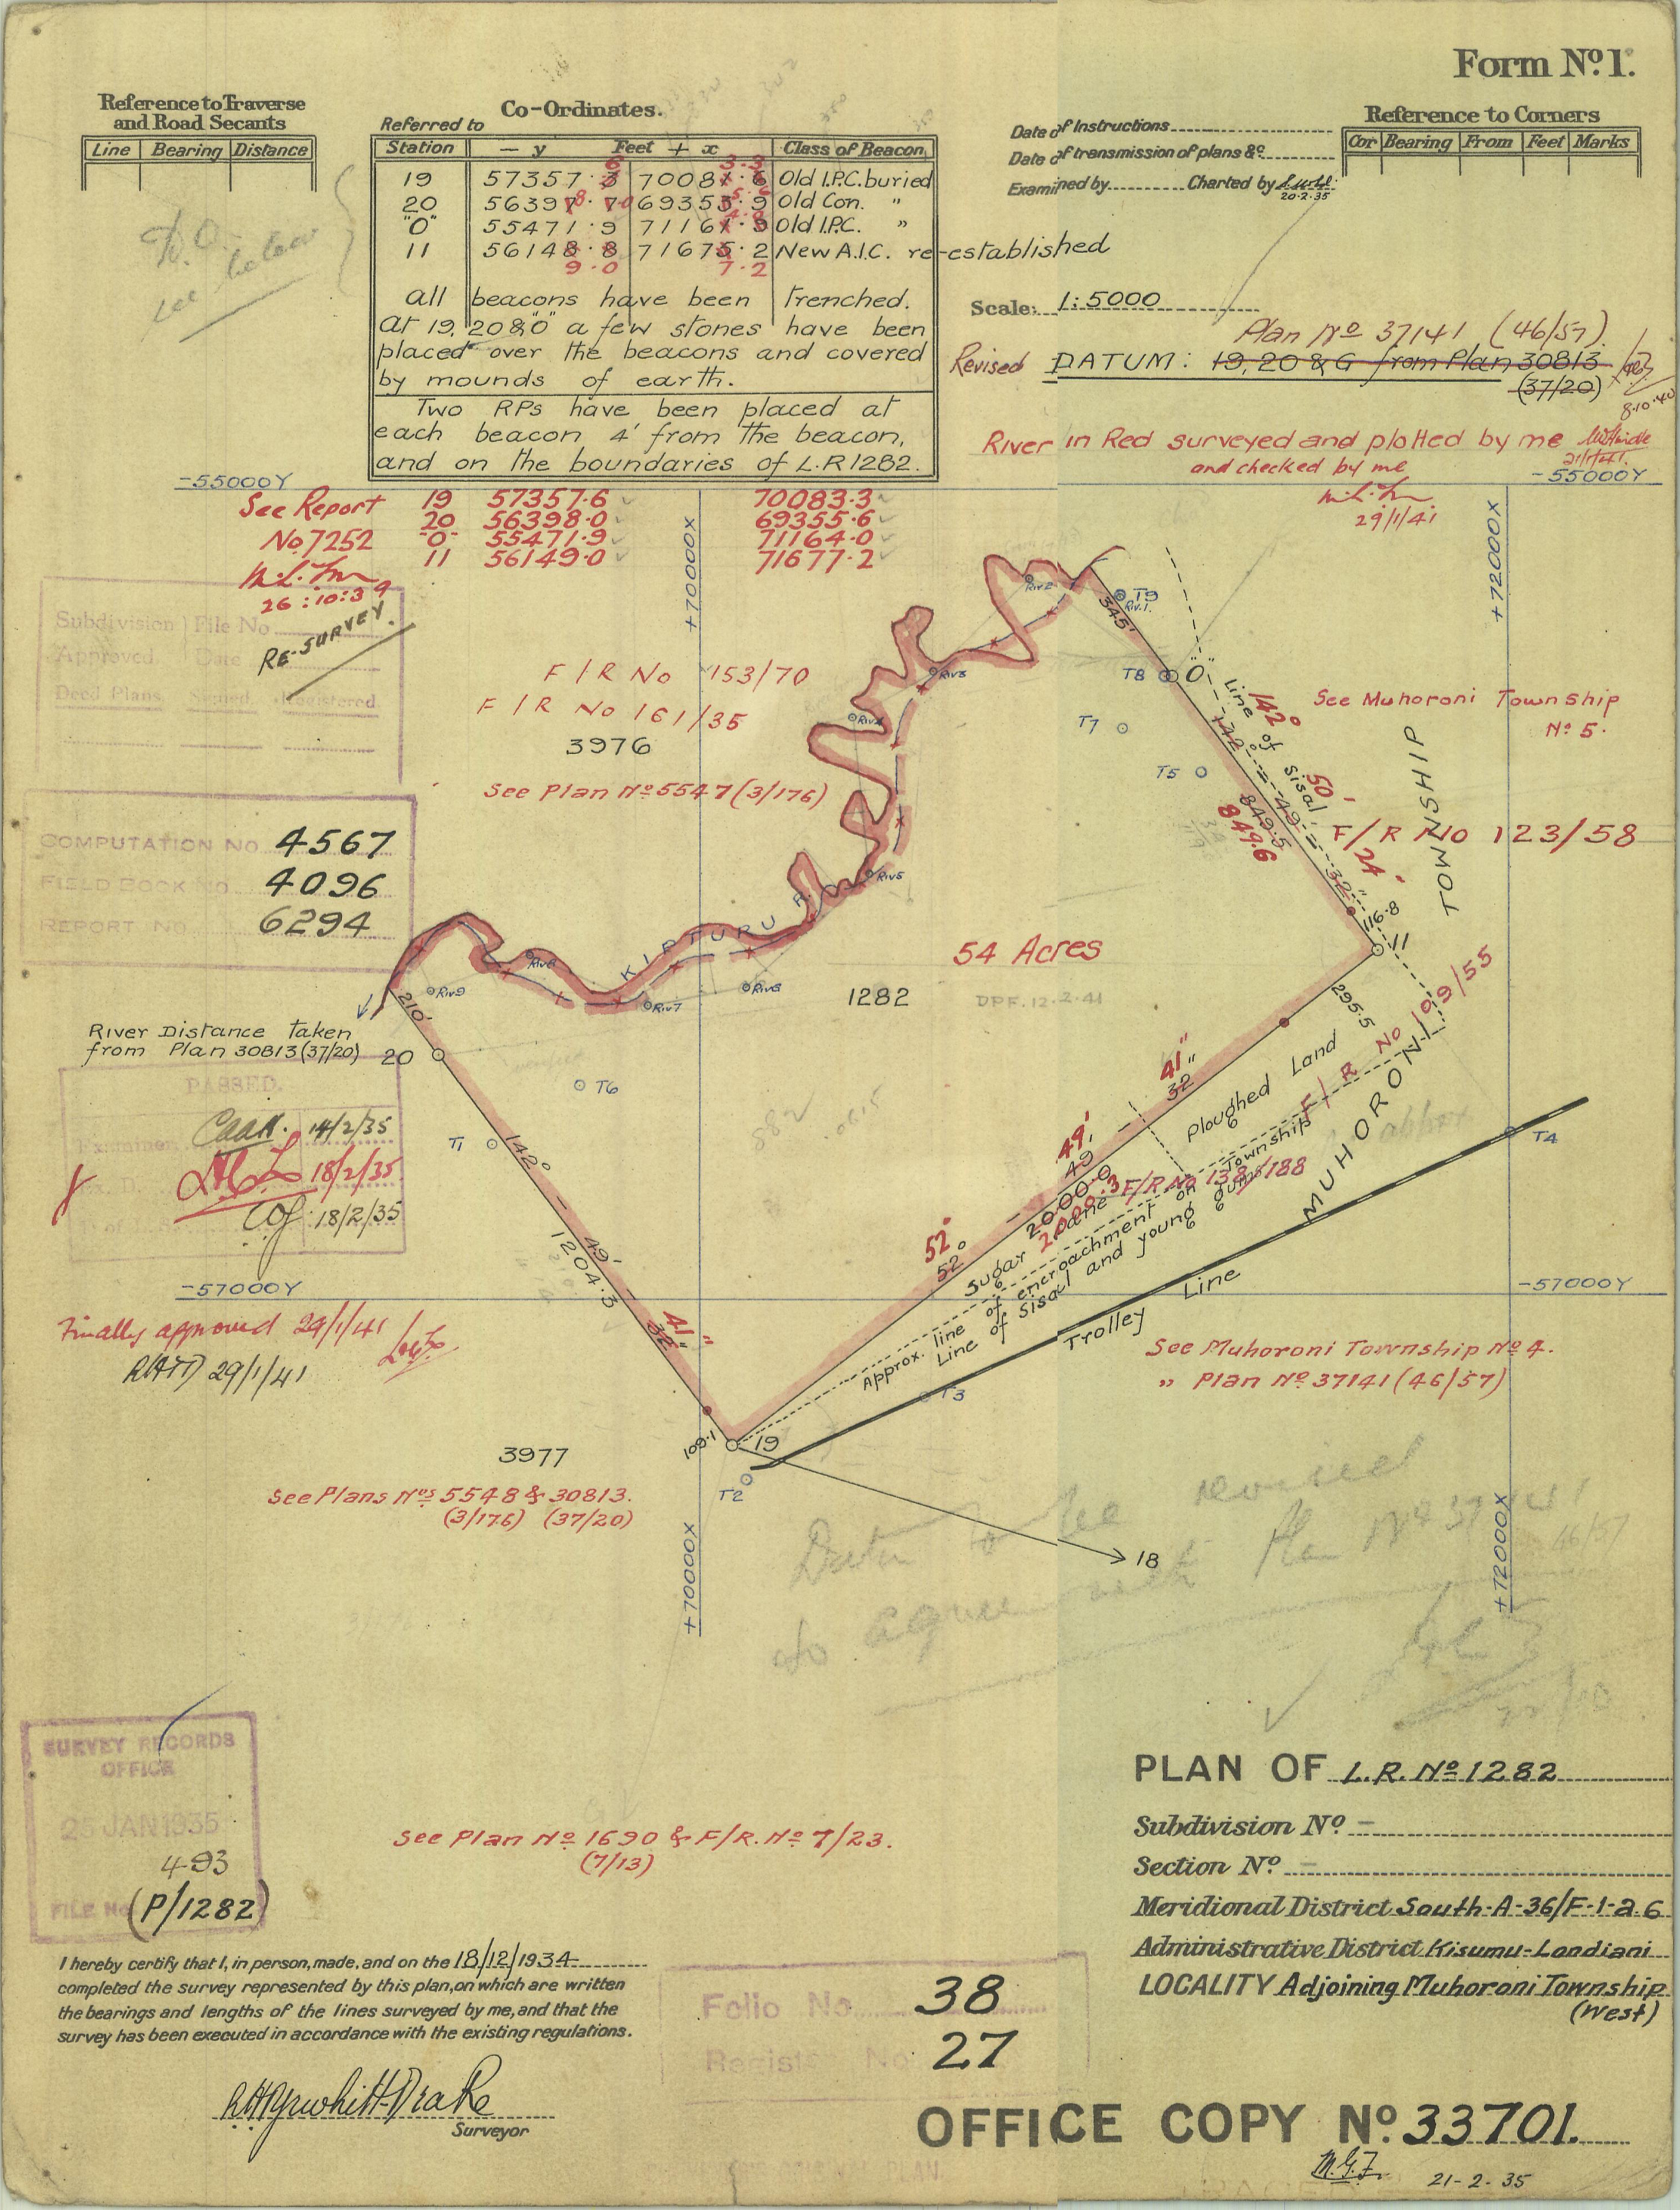 Form No. 1.
Reference to Traverse
and Road Secants
Line Bearing Distance
Co-Ordinates.
Referred to
Station — y Feet + x Class of Beacon
19 57357.3 70081.6 Old I.P.C. buried
20 56397.7 69353.9 Old Con. "
"O" 55471.9 71161.9 Old I.P.C. "
11 56148.8 71675.2 New A.I.C. re-established
9.0 7.2
all beacons have been trenched.
At 19, 20 & "O" a few stones have been
placed over the beacons and covered
by mounds of earth.
Two RPs have been placed at
each beacon 4' from the beacon,
and on the boundaries of L.R 1282.
Date of Instructions
Date of transmission of plans &c
Examined by Charted by
20.2.35
Reference to Corners
Cor Bearing From Feet Marks
see below
Scale: 1:5000
Plan No 37141 (46/57).
Revised DATUM: 19, 20 & G from Plan 30813
(37/20)
8.10.40
River in Red surveyed and plotted by me
21/1/41.
and checked by me
29/1/41
-55000Y
-55000Y
See Report
No 7252
26:10:39
19 57357.6 70083.3
20 56398.0 69355.6
-O- 55471.9 71164.0
11 56149.0 71677.2
+70000X
+72000X
Subdivision File No
Approved. Date
Deed Plans Signed. Registered
RE-SURVEY.
F/R No 153/70
F/R No 161/35
3976
See Plan No 5547 (3/176)
Riv.2
T9
Riv.1.
345'
Riv3
T8
"O"
T7
Riv4
T5
Line of Sisal
142°
142°
50'
49'
849.5
849.6
24"
32"
116.8
11
See Muhoroni Township
No 5.
F/R No 123/58
MUHORONI TOWNSHIP
COMPUTATION No 4567
FIELD BOOK NO 4096
REPORT NO. 6294
Riv5
KIPTURU R.
Riv6
Riv9
Riv7
Riv8
54 Acres
1282
DPF. 12.2.41
295.5
F/R No 109/55
210
River Distance taken
from Plan 30813 (37/20)
20
T6
T1
PASSED.
Examiner 14/2/35
18/2/35
18/2/35
142°
49'
1204.3
41"
32"
109.1
41"
32"
49'
49'
2000.0
2000.3
52°
52°
Ploughed Land
F/R No 138/188
Sugar Cane
Approx. line of encroachment on Township
Line of Sisal and young gums
Trolley Line
T4
T3
-57000Y
-57000Y
Finally approved 29/1/41
29/1/41
See Muhoroni Township No 4.
" Plan No 37141 (46/57)
19
T2
18
3977
See Plans Nos 5548 & 30813.
(3/176) (37/20)
+70000X
+72000X
Datum to be revised
to agree with Plan No 37141
46/57
SURVEY RECORDS
OFFICE
JAN 1935
493
FILE No (P/1282)
See Plan No 1690 & F/R. No 7/23.
(7/13)
PLAN OF L.R. No 1282
Subdivision No. —
Section No. —
Meridional District South-A-36/F-1-a.6
Administrative District Kisumu-Londiani
LOCALITY Adjoining Muhoroni Township
(West)
I hereby certify that I, in person, made, and on the 18/12/1934
completed the survey represented by this plan, on which are written
the bearings and lengths of the lines surveyed by me, and that the
survey has been executed in accordance with the existing regulations.
Surveyor
Folio No 38
Register No 27
OFFICE COPY No. 33701.
M.G.F. 21-2.35